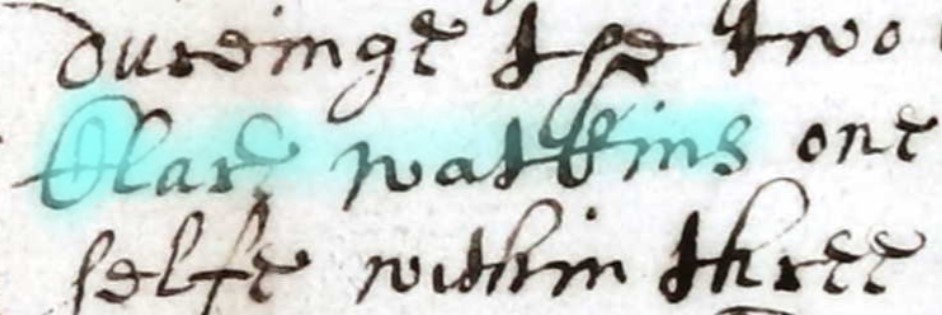 dureinge the two
Clare watkins one
selfe within three